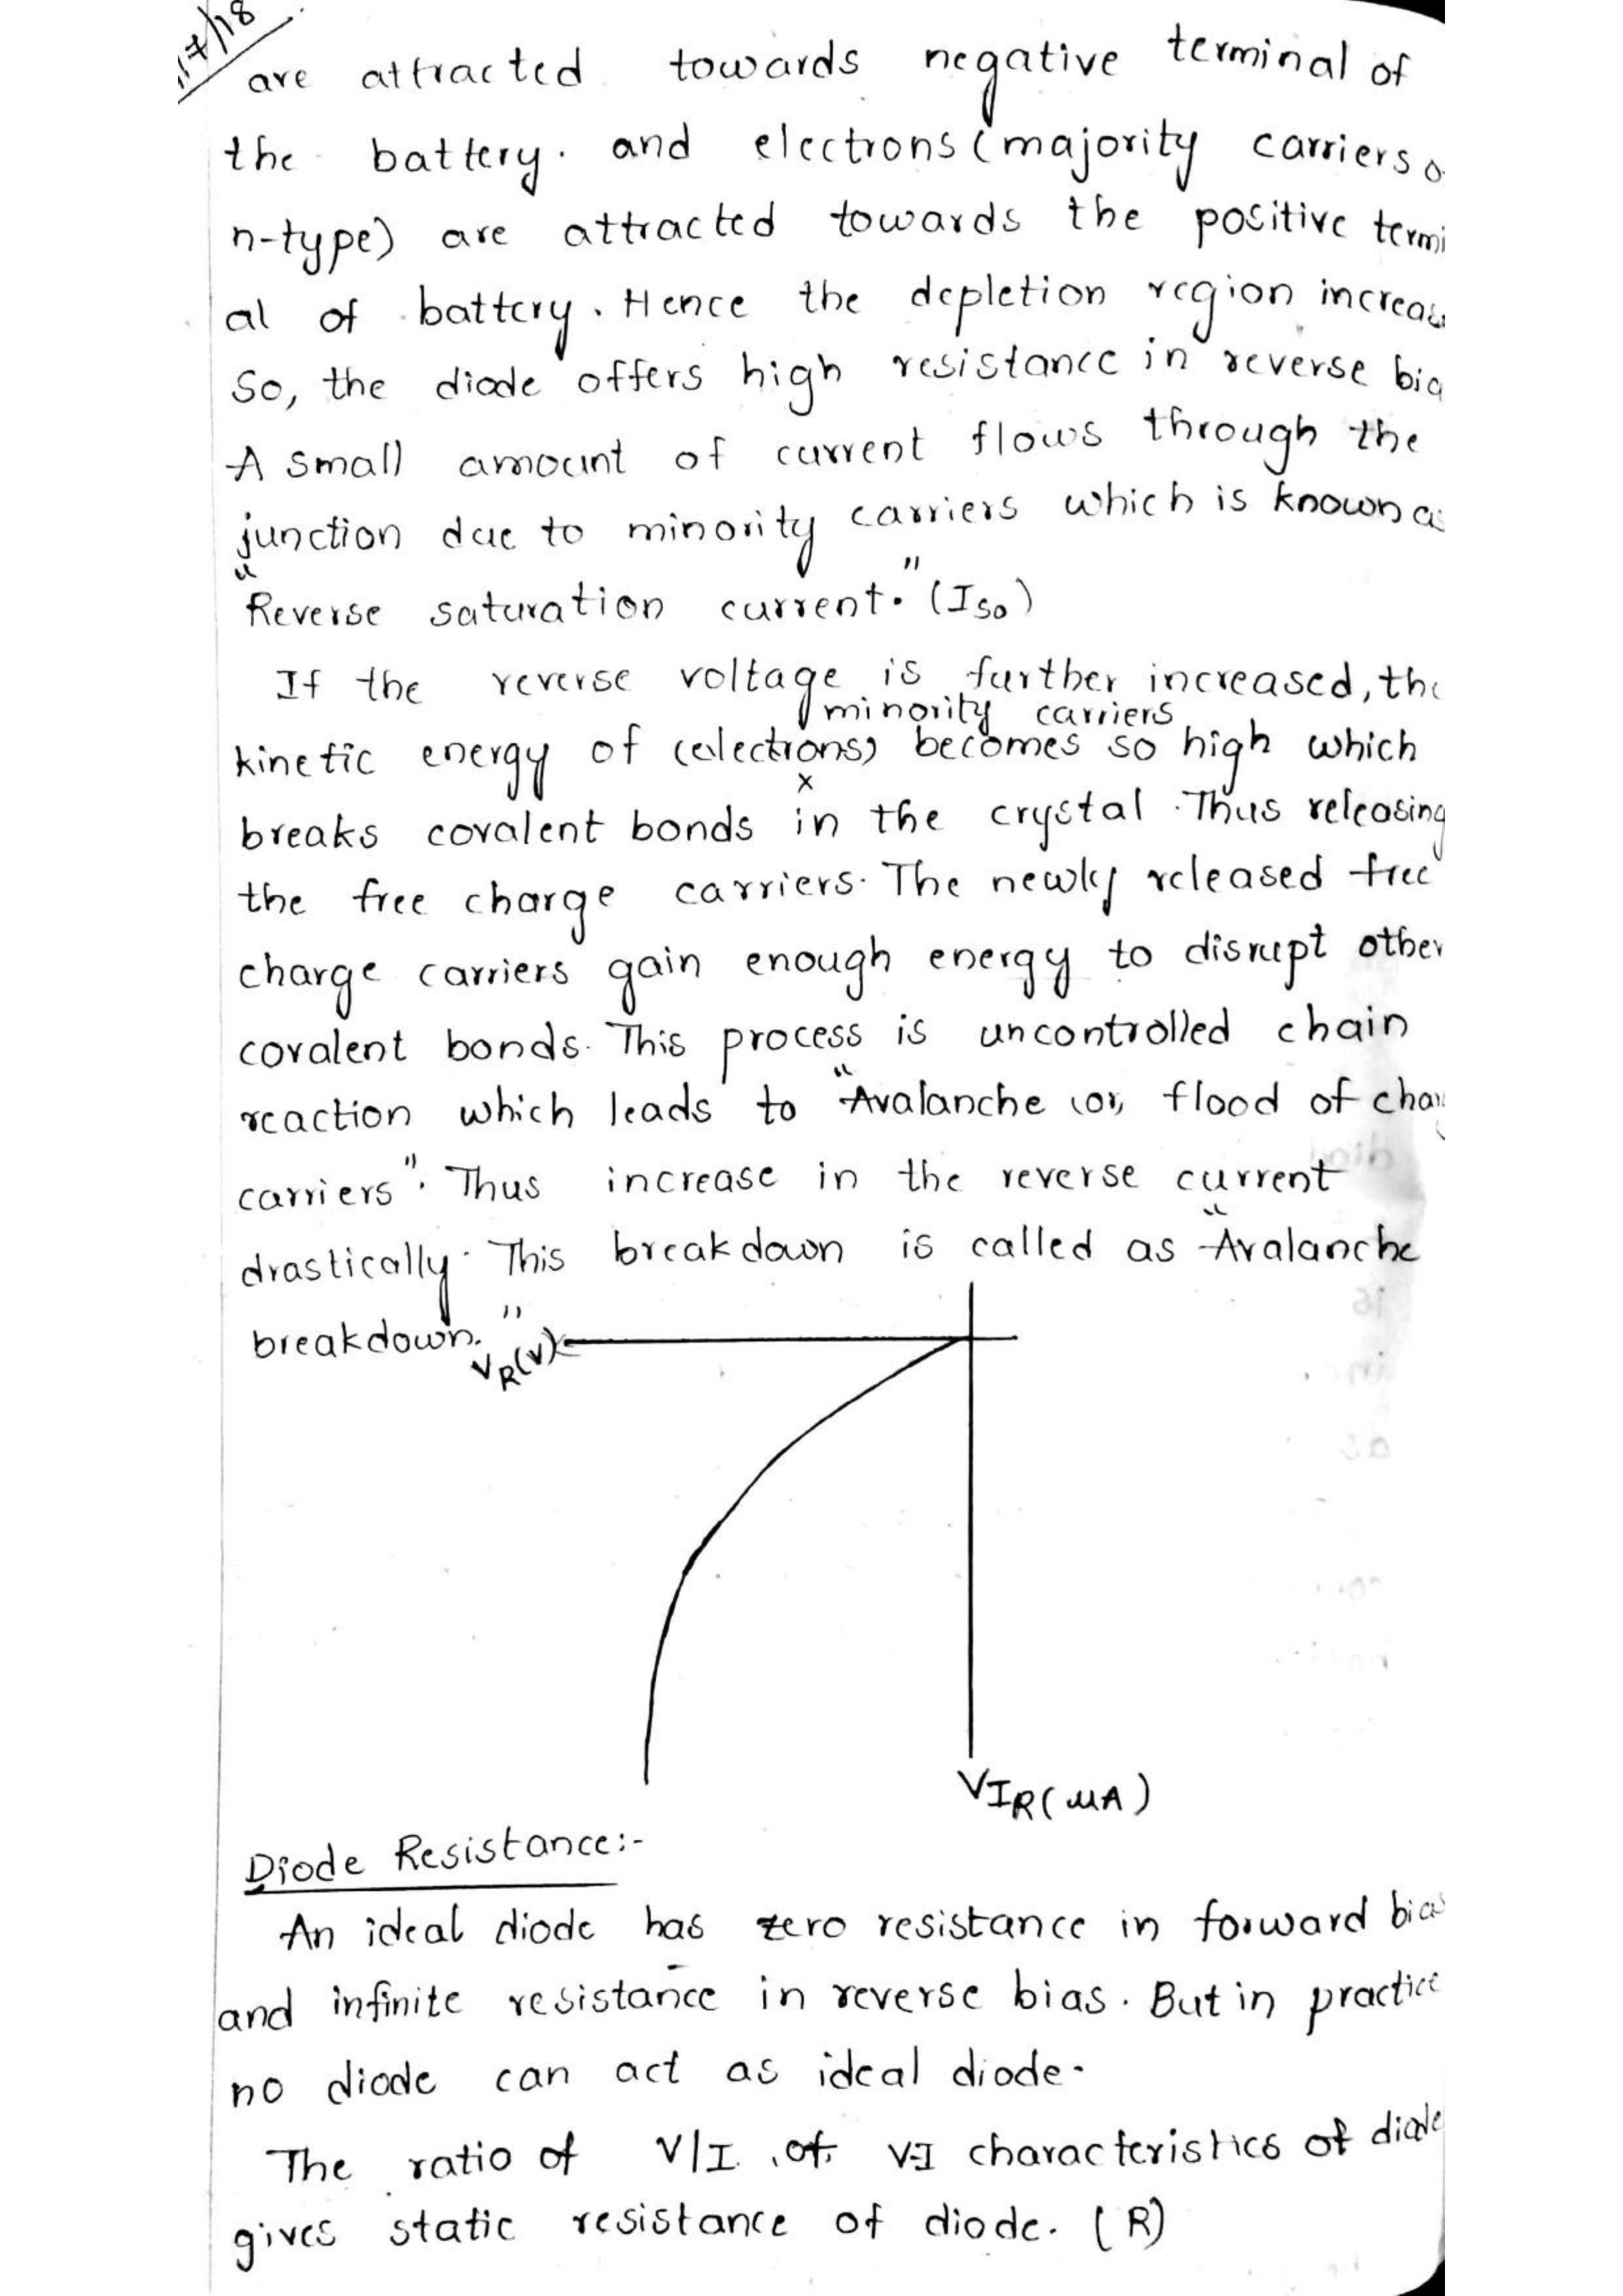 17/18
are attracted towards negative terminal of
the battery. and electrons (majority carriers o
n-type) are attracted towards the positive termi
al of battery. Hence the depletion region increas
So, the diode offers high resistance in reverse bia
A small amount of current flows through the
junction due to minority carriers which is known as
"Reverse saturation current." (Iso)
If the reverse voltage is further increased, the
minority carriers
kinetic energy of (electrons) becomes so high which
x
breaks covalent bonds in the crystal. Thus releasing
the free charge carriers. The newly released free
charge carriers gain enough energy to disrupt other
covalent bonds. This process is uncontrolled chain
reaction which leads to "Avalanche (or) flood of char
carriers". Thus increase in the reverse current
drastically. This breakdown is called as "Avalanche
breakdown."
VR(V)
IR(μA)
Diode Resistance:-
An ideal diode has zero resistance in forward bias
and infinite resistance in reverse bias. But in practice
no diode can act as ideal diode.
The ratio of V/I of V-I characteristics of diode
gives static resistance of diode. (R)